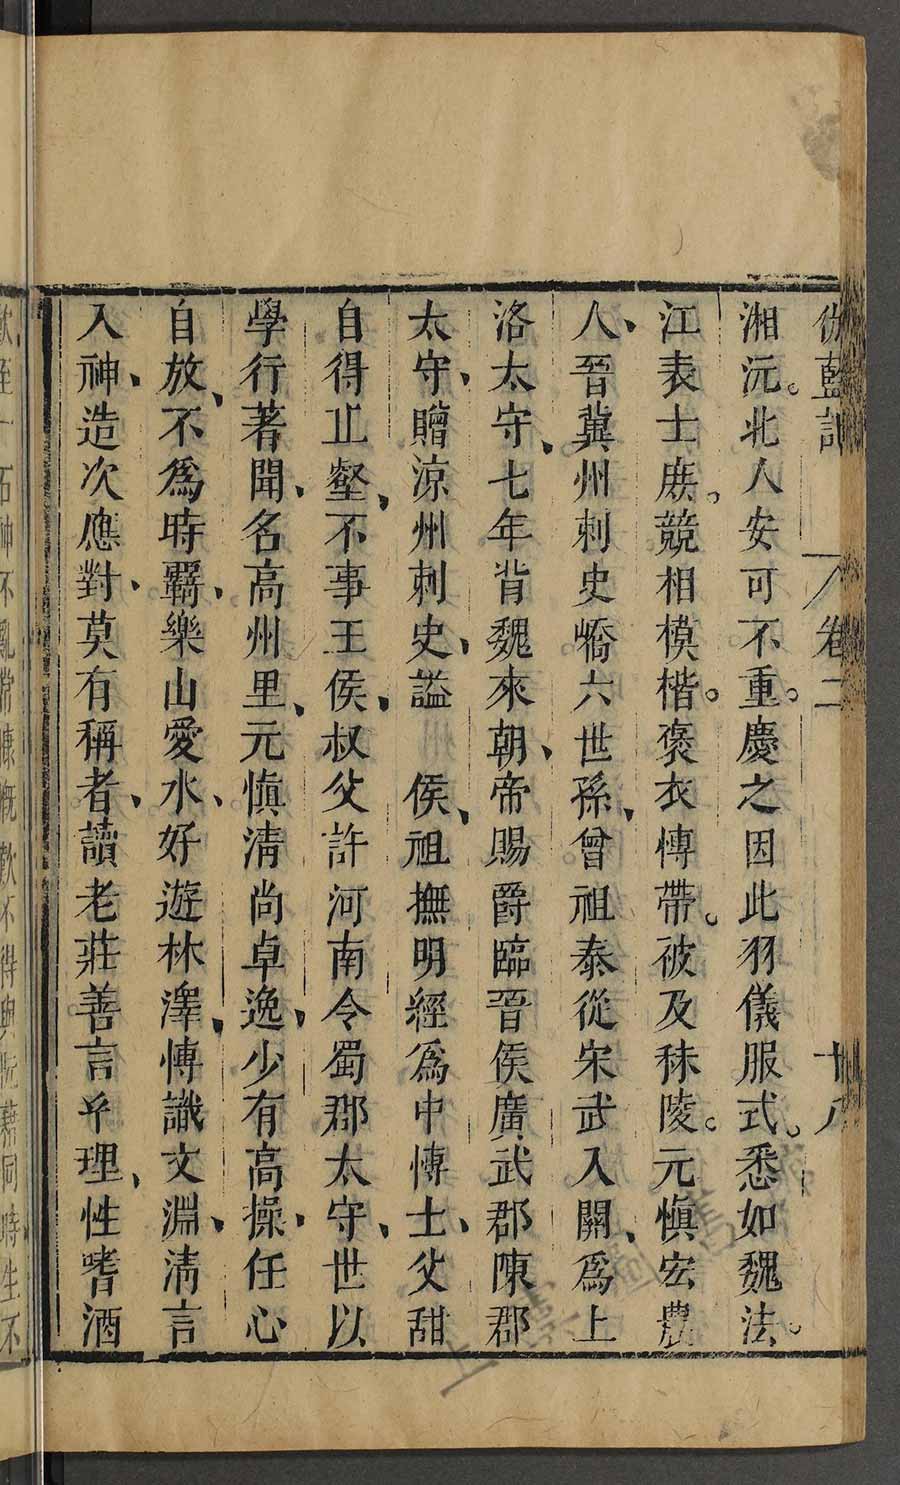 伽藍記 卷二 十八
湘沅。北人安可不重。慶之因此羽儀服式。悉如魏法。
江表士庶。競相模楷。褒衣愽帶。被及秣陵。元愼宏農
人、晉冀州刺史嶠六世孫、曾祖泰從宋武入關、爲上
洛太守、七年背魏來朝、帝賜爵臨晉侯廣武郡陳郡
太守、贈涼州刺史、謚 侯、祖撫明經爲中愽士、父甜
自得丘壑、不事王侯、叔父許河南令蜀郡太守、世以
學行著聞、名高州里、元愼清尚卓逸、少有高操、任心
自放、不爲時羈、樂山愛水、好遊林澤、愽識文淵、清言
入神、造次應對、莫有稱者、讀老莊善言𤣥理、性嗜酒